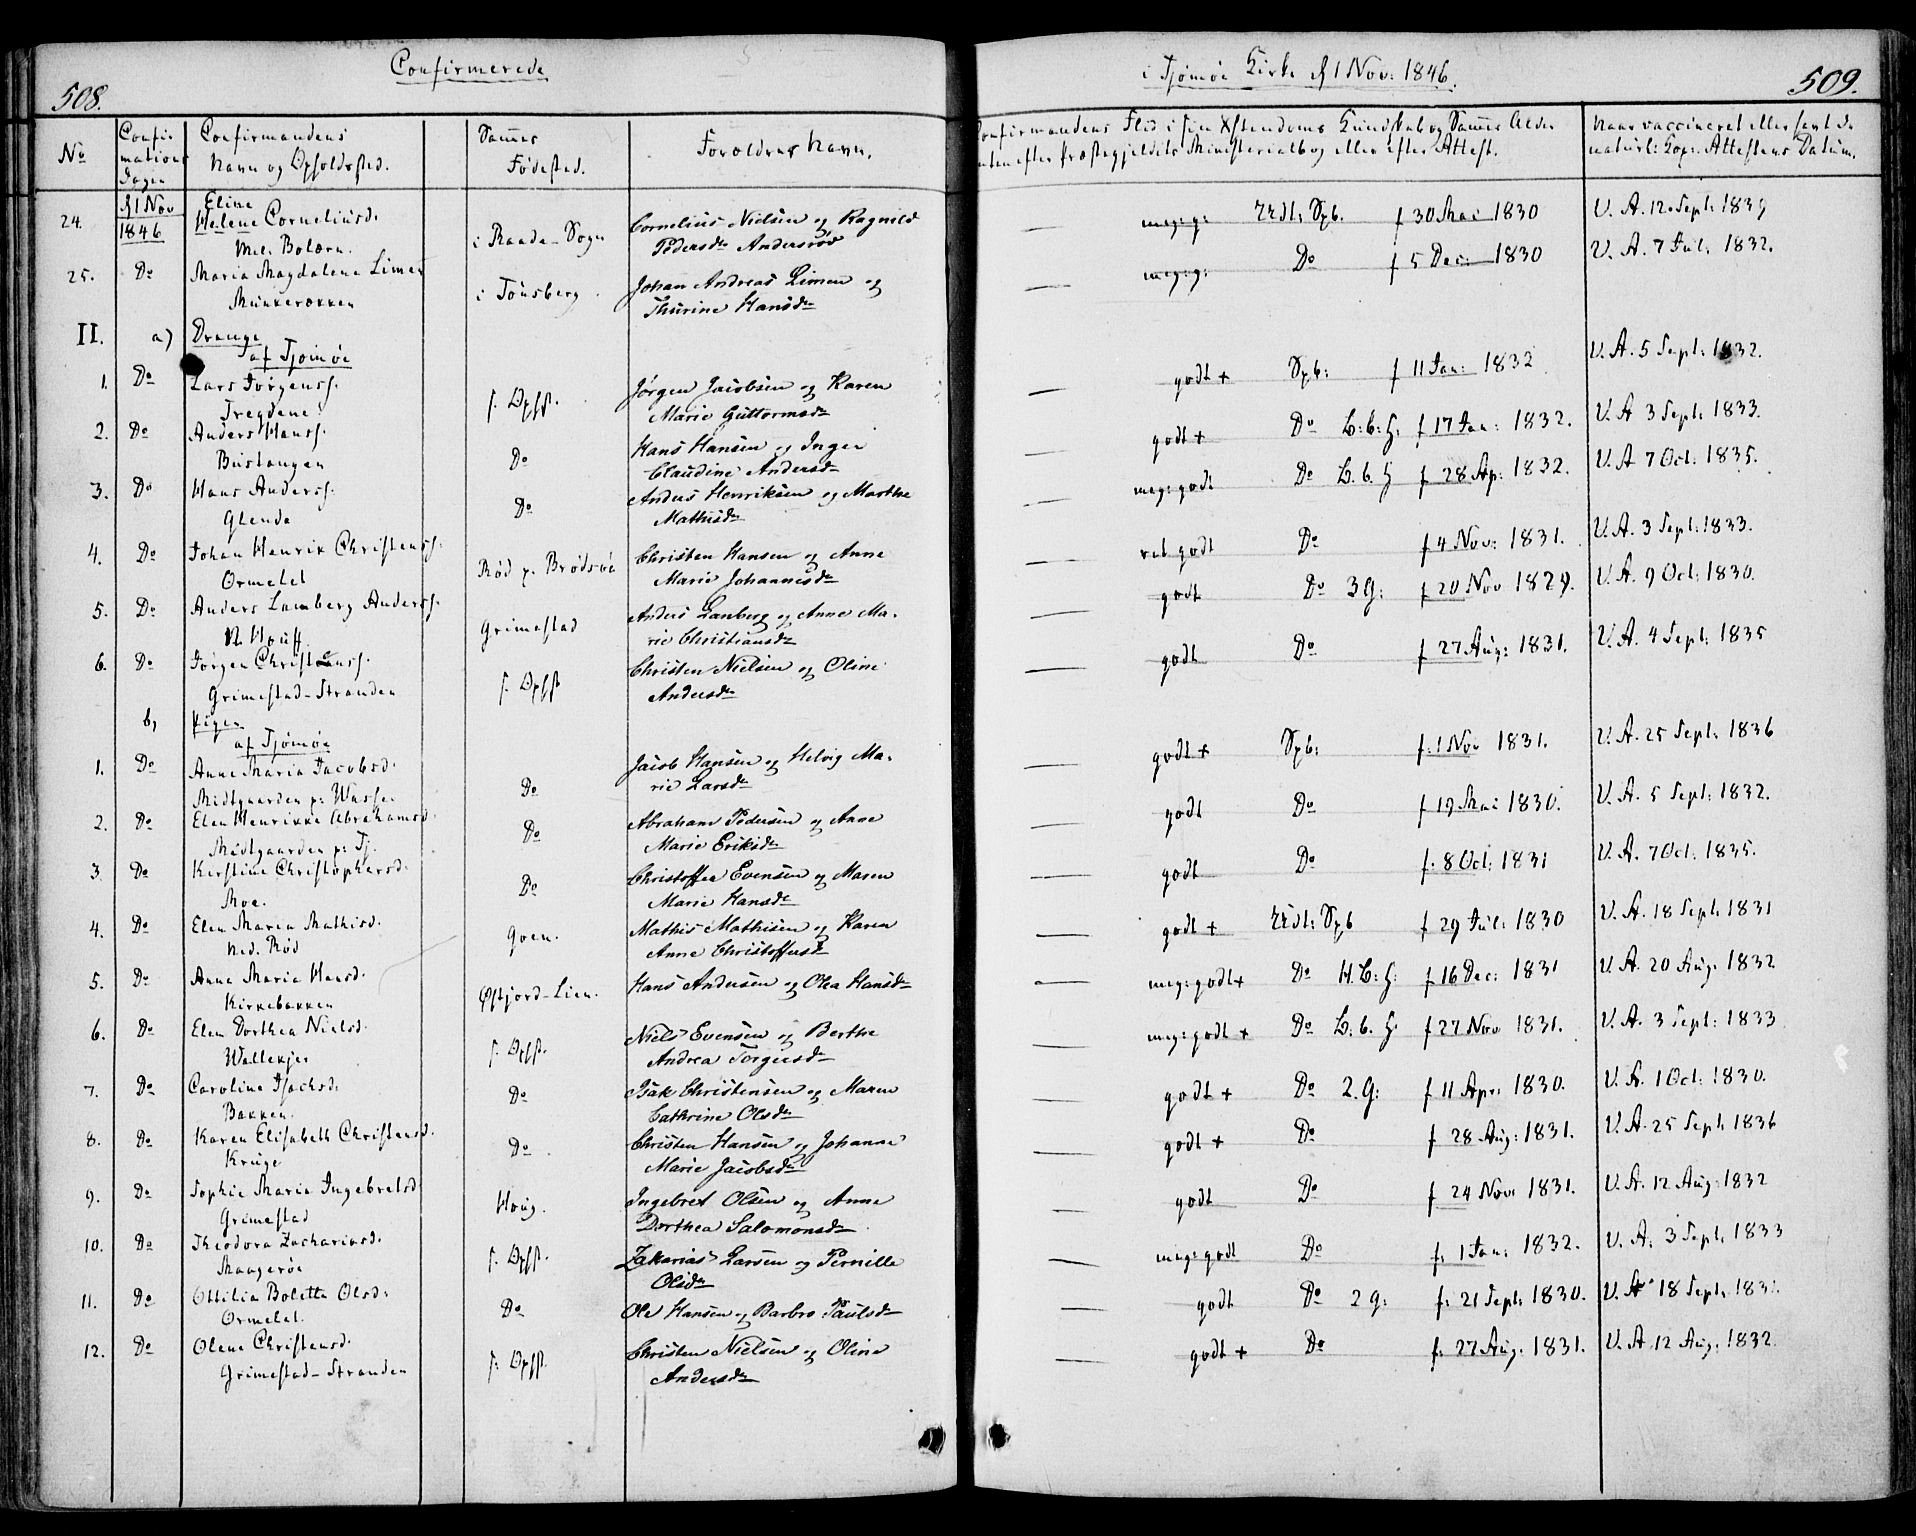 508.
Confirmerede
No
Confir
mations
Dagen
Confirmandens
Navn og Opholdssted.
Sammes
Fødested.
Forældres Navn.
24.
d 1 Nov
1846
Eline
Helene Corneliusd.
Mel. Bolærn.
i Raade-Sogn
Cornelius Nielsen og Ragnild
Pedersdr Andersrød
25.
Do
Maria Magdalena Limen
Munkerekken
i Tønsberg.
Johan Andreas Limen og
Thurine Hansdr
II.
a) Drenge
af Tjømøe
1.
Do
Lars Jørgenss.
Tregdene.
s. Opsst.
Jørgen Jacobsen og Karen
Marie Guttormsdr
2.
Do
Anders Hanss.
Bustangen
Do
Hans Hansen og Inger
Claudine Andersdr
3.
Do
Hans Anderss.
Glenda
Do
Anders Henriksen og Marthe
Mathisdr
4.
Do
Johan Henrik Christenss.
Ormelet
Rød p. Brødsøe
Christen Hansen og Anne
Marie Johannesdr
5.
Do
Anders Lamberg Anderss.
N. Houff
Grimestad
Anders Lanberg og Anne Ma-
rie Christiansdr
6.
Do
Jørgen Christenss.
Grimestad-Stranden
s. Opsst
Christen Nielsen og Oline
Andersdr
b, Piger
af Tjømøe
1.
Do
Anne Maria Jacobsd.
Midtgaarden p: Wasser
Do
Jacob Hansen og Helvig Ma-
rie Larsdr
2.
Do
Elen Henrikke Abrahamsd.
Midtgaarden p: Tj.
Do
Abraham Pedersen og Anne
Marie Eriksdr
3.
Do
Kirstine Christophersd.
Moe.
Do
Christoffer Evensen og Maren
Marie Hansdr
4.
Do
Elen Maria Mathisd.
Ned. Rød
Goen.
Mathis Mathisen og Karen
Anne Christoffersdr
5.
Do
Anne Maria Hansd.
Kirkebakken
Østjord-Lien.
Hans Andersen og Olea Hansdr
6.
Do
Elen Dorthea Nielsd.
Wallekjer
s. Opsst.
Niels Evensen og Berthe
Andrea Torgersdr
7.
Do
Caroline Isachsd.
Bakken.
Do
Isak Christensen og Maren
Cathrine Olsdr
8.
Do
Karen Elisabeth Christensd.
Kruge
Do
Christen Hansen og Johanne
Marie Jacobsdr
9.
Do
Sophie Maria Ingebretsd
Grimestad
Houg.
Ingebret Olsen og Anne
Dorthea Salomonsdr
10.
Do
Theodora Zachariasd.
Maagerøe
s. Opsst.
Zakarias Larsen og Pernille
Olsdr
11.
Do
Ottilia Boletta Olsd:
Ormelet.
Do
Ole Hansen og Barbro Paulsdr
12.
Do
Olene Christensd.
Grimestad-Stranden
s. Opsst.
Christen Nielsen og Oline
Andersdr
i Tjømøe Kirke d 1 Nov: 1846.
509.
Confirmandens Flid i sin Xstendoms Kundskab og Sammes Alder
enten efter Præstegjeldets Ministerialbog eller efter Attest.
Naar vaccineret eller havt de
naturl: Kopr. Attestens Datum.
meg: g: Udt: Spb. f 30 Mai 1830 V. A. 12 Sept: 1839
meg: g: Do f 5 Dec: 1830 V. A. 7 Jul: 1832.
godt + Spb: f 11 Jan: 1832 V. A. 5 Sept: 1832.
godt + Do B: b: H: f 17 Jan: 1832. V. A 3 Sept: 1833.
meg: godt Do B. b. H f 28 Ap: 1832. V. A 7 Oct: 1835.
ret godt Do f 4 Nov: 1831. V. A. 3 Sept: 1833.
godt Do 3 G: f 20 Nov 1829. V. A. 9 Oct: 1830.
godt Do f 27 Aug: 1831. V. A. 4 Sept: 1835
godt + Spb: f: 1 Nov 1831. V. A. 25 Sept: 1836
godt Do f 19 Mai 1830. V. A. 5 Sept: 1832.
godt Do f: 8 Oct: 1831 V. A. 7 Oct: 1835.
godt + Udt: Spb f 29 Jul: 1830 V. A. 18 Sept: 1831
meg: godt + Do H. B: H: f 16 Dec: 1831 V. A. 20 Aug. 1832
meg: godt + Do B: b. H. f 27 Nov 1831. V. A. 3 Sept: 1833
godt + Do 2. G: f 11 Apr: 1830. V. A. 1 Oct: 1830.
godt + Do f 28 Aug: 1831. V. A. 25 Sept: 1836
godt Do f 24 Nov 1831. V. A. 12 Aug: 1832
meg: godt Do f: 1 Jan: 1832. V. A. 3 Sept: 1833
godt Do 2 g: f: 21 Sept: 1830. V. A 18 Sept: 1831.
godt + Do f: 27 Aug: 1831. V. A. 12 Aug: 1832.